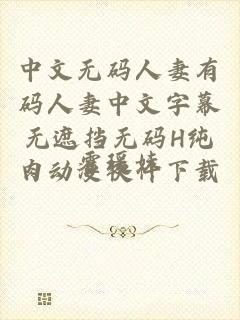 中文无码人妻有
码人妻中文字幕
无遮挡无码H纯
肉动漫软件下载